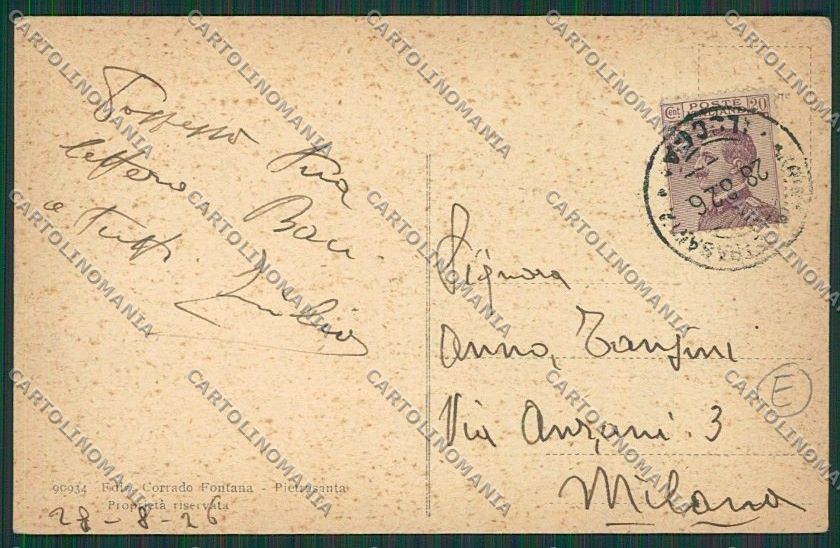 Possesso tua
lettera Baci
a tutti
Giulio
90934 Ediz. Corrado Fontana - Pietrasanta
Proprietà riservata
28-8-26
Cent POSTE 20
ITALIANE
LUCCA
28 8 26
PIETRASANTA
Signora
Anna Tanzini
Via Anzani 3
Milano
E
CARTOLINOMANIA